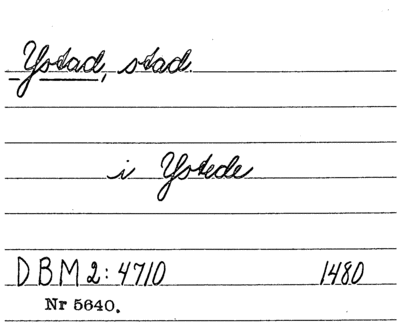 Ystad, stad.
i Ystede
DBM 2: 4710 1480
Nr 5640.